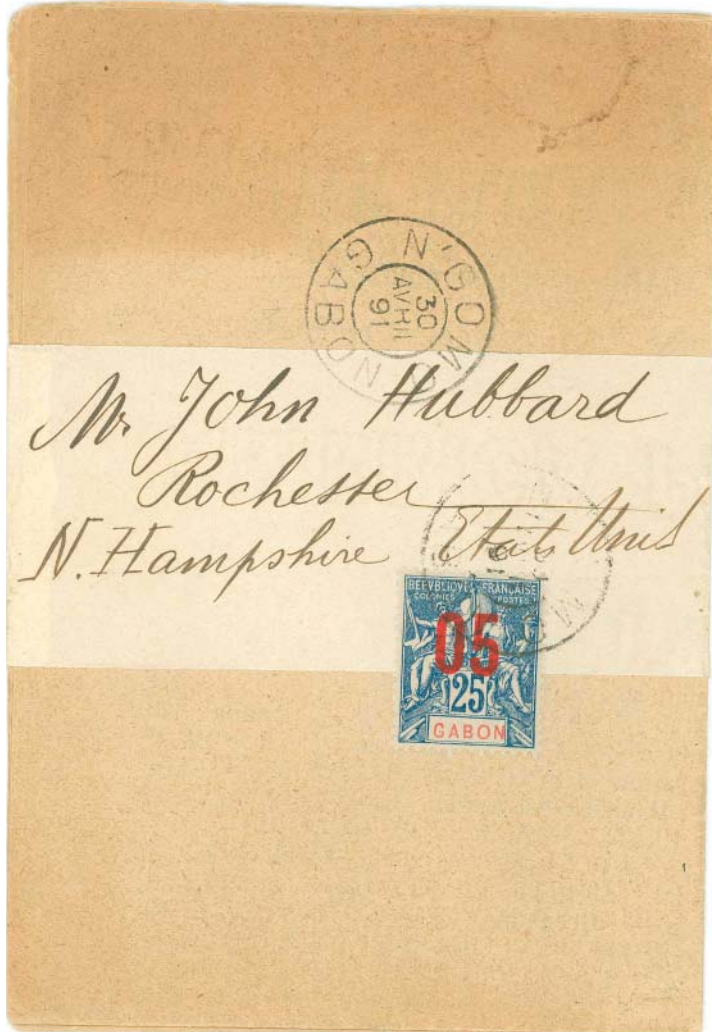 N'GOMO
30
AVRIL
91
GABON
Mr John Hubbard
Rochester
N. Hampshire Etats Unis
REPVBLIQVE FRANÇAISE
COLONIES POSTES
05
25
GABON